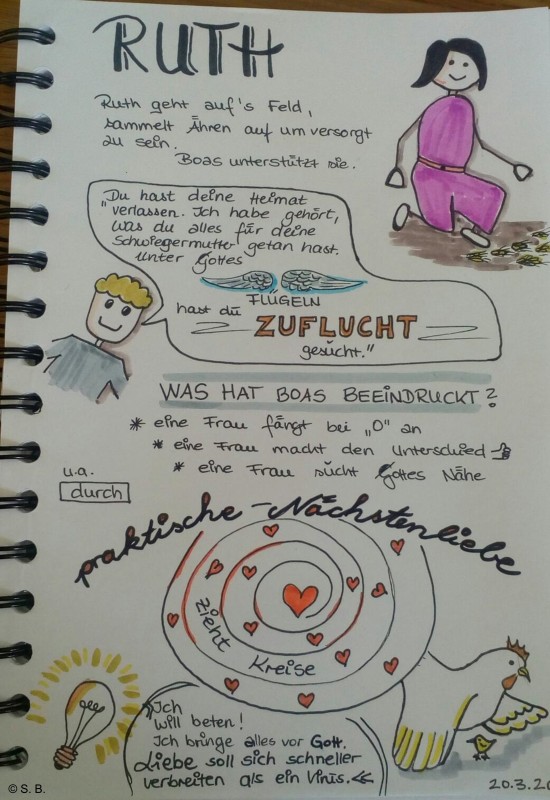 RUTH
Ruth geht auf's Feld,
sammelt Ähren auf um versorgt
zu sein.
Boas unterstützt sie.
„Du hast deine Heimat
verlassen. Ich habe gehört,
was du alles für deine
Schwiegermutter getan hast.
Unter Gottes
FLÜGELN
hast du ZUFLUCHT
gesucht."
WAS HAT BOAS BEEINDRUCKT?
* eine Frau fängt bei „0" an
* eine Frau macht den Unterschied
* eine Frau sucht Gottes Nähe
u.a.
durch
praktische-Nächstenliebe
zieht
Kreise
Ich
will beten!
Ich bringe alles vor Gott.
Liebe soll sich schneller
verbreiten als ein Virus.<<
20.3.20
© S. B.